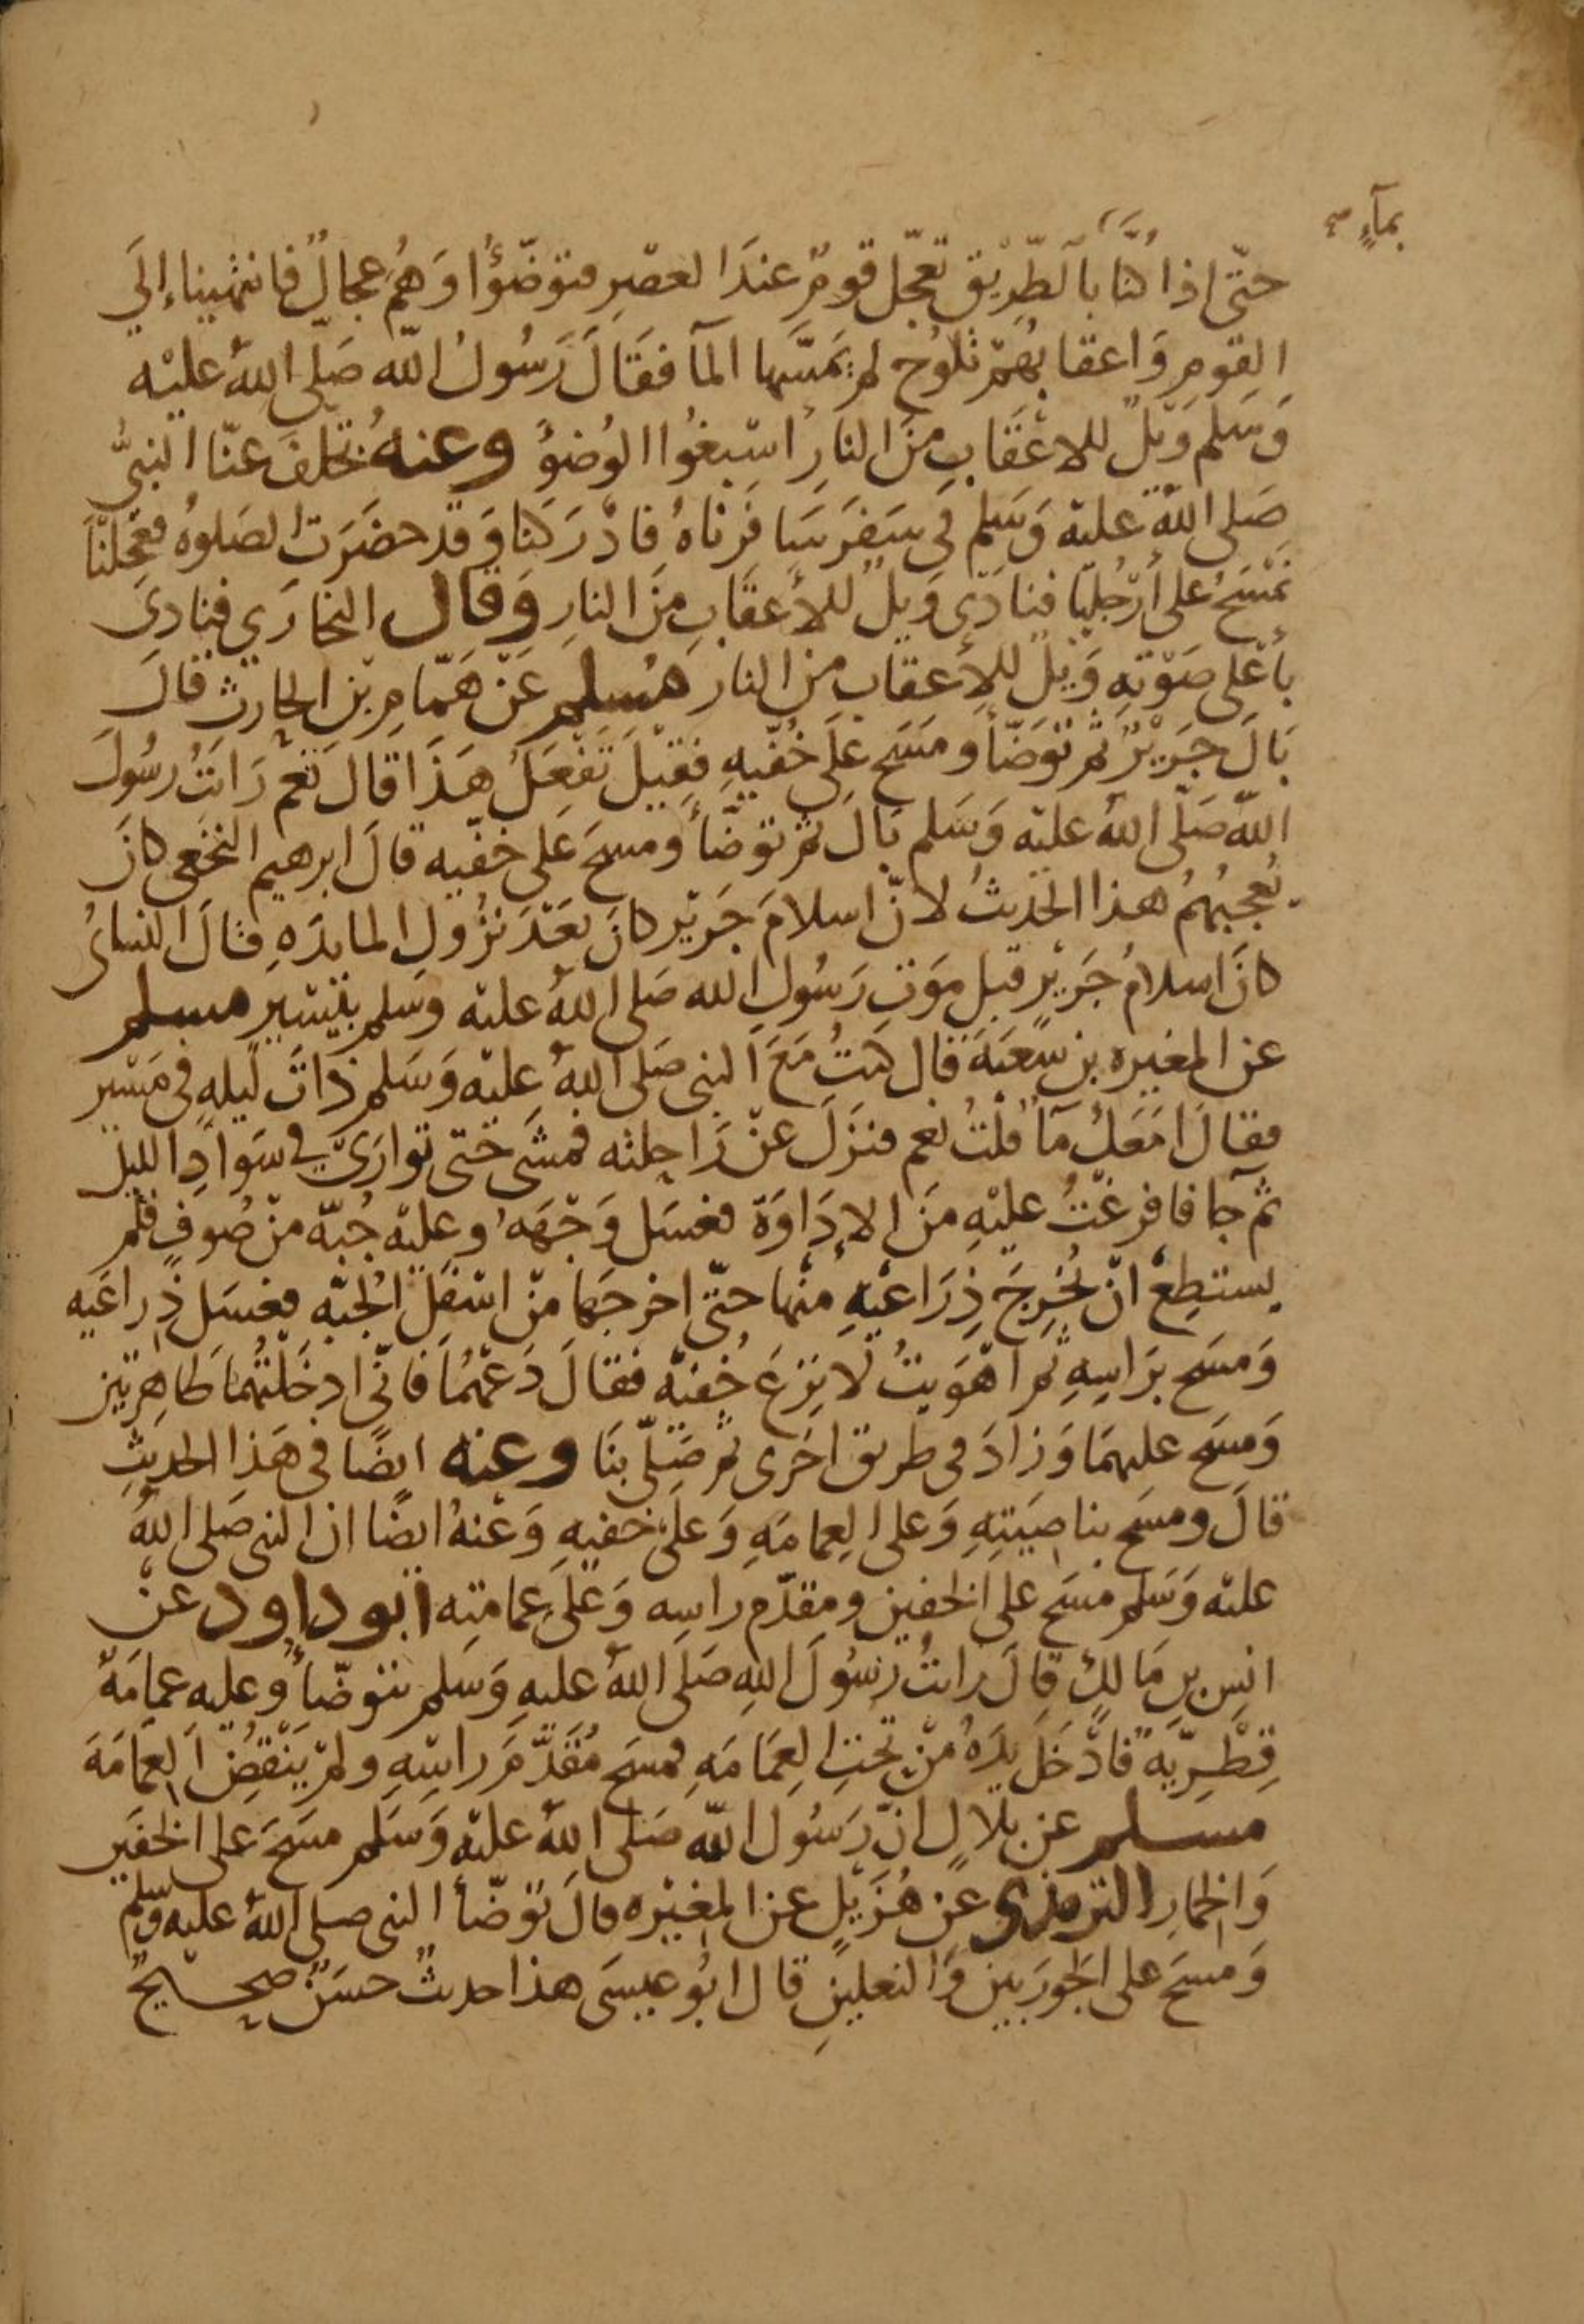 بمآءٍ صح
حتّى اذا كنا بالطّرِيْق تعجّل قومٌ عندَ العصْرِ فتوضّؤُا وَهُم عجالٌ فانتهيناءِ إلَي
القومِ وَاعقابُهمْ تلوُح لم يمَسَّها المآ فقَالَ رَسُولُ اللّه صَلّى اللهُ عليْه
وَسَلم وَيلٌ للاعْقَابِ مِنَ النارِ اسْبغُوا الوُضوُ وعنهُ تخلفَ عنّا النبىُّ
صَلى اللهُ عليْه وَسَلم فى سَفرَ سَا فرناهُ فادْرَكنا وَقدْ حضَرَت الصَلوهُ فجَعَلنَا
نمْسَحُ على أرْجُلِنا فنادَى وَيلٌ للأعقَابِ مِنَ النارِ وَقال البخارَي فنادىَ
بأعْلى صَوْتهِ وَيْلٌ للِأعقابِ مِنَ النار مُسلم عَنْ همّامِ بْن الحارث قالَ
بَالَ جَرَيْرٌ ثم توَضّأ ومَسَح علَى خُفّيهِ فقِيْلَ تَفْعَلُ هَذَا قالَ نَعم رَاتُ رسُولَ
اللّه صَلّى اللهُ عليْه وَسَلم بَالَ ثم توضّأ ومسحَ عَلى خفّيه قالَ ابرهيم النخَعى كانَ
يُعجبُهُم هذا الحديثُ لانّ اسلامَ جَريْر كانَ بَعْدَ نزُولِ المايدَهِ قالَ النساىُ
كانَ اسلامُ جَرَيْر قبل موَتِ رَسُولِ الله صَلى اللهُ عليْه وسَلم بيَسْيرٍ مسلم
عن المغيره بن شعبَةَ قال كنتُ مَعَ النبى صَلى اللهُ عليْه وَسَلم ذاتَ ليلهٍ فى مَسْير
فقالَ امَعَكُ مآ قُلْتُ نعم فنزَلَ عنْ رَاحِلته فمشَى حَتى توارَىَ في سَوَادِ الليل
ثم جآ فافرغتُ عليْهِ مِنَ الإدَاوَة فغسَل وَجْهَهُ وعليْه جُبّة منْ صُوفٍ فلم
يستطِعْ انْ يُخرِجَ ذِرَاعيْهِ مِنْها حتّى اخرجَها منْ اسْفلِ الجُبّه فغسَل ذِراعَيه
وَمسَح برَاسِهِ ثم اهْوَيتُ لانزعَ خُفيّه فقالَ دَعْهُمَا فانّى ادخَلتُهمَا طاهِرتيَنِ
وَمسَح عليهمَا وَزادَ فى طريق اخرَى ثم صَلّى بنَا وعنه ايضًا فى هَذا الحديثِ
قالَ ومسَح بناصِيَتِهِ وَعلى العِمامَهِ وَعلَى خفيهِ وَعْنهُ ايضًا ان النبى صَلى اللهُ
عليْه وَسَلم مسَح على الخفين ومقدّم راسِه وَعلَى عمامتِه ابو داود عنْ
انسِ بن مَالكٍ قالَ راتُ رسُولَ اللهِ صَلَى اللهُ عليهِ وَسَلم يتوضّأُ وعليه عمِامَةٌ
قِطْرِيّةٌ فادْخَلَ يدَهُ منْ تحتِ العِمَامَهِ فمسَح مُقَدّمَ راسِهِ ولمْ يَنْقضُ العِمَامَةَ
مسلم عن بلالٍ انّ رَسُول اللّه صَلى اللهُ عليْه وَسَلم مسَحَ على الخفَين
وَالخمارِ الترمذى عن هُزَيْلٍ عن المغيْره قالَ توَضّأ النبى صلى اللهُ عليْه وسلم
وَمسَحَ على الجَورَبين وَالنعلينِ قال ابُو عيسَى هذا حديثٌ حسَنٌ صحيحٌ